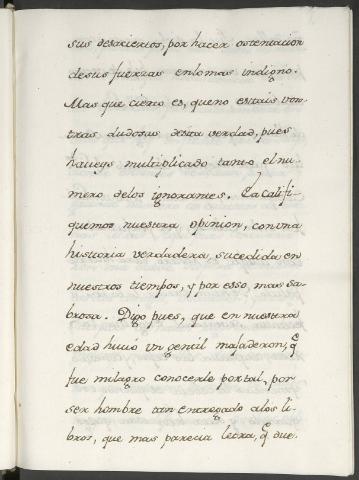 sus desacierios, por hacer ostentacion
desus fuerzas enlomas indigno.
Mas que cierto es, queno estais vos-
tras dudosas desta verdad, pues
haveys multiplicado tanto el nu-
mero delos ignorantes. Ca califi-
quemos nuestra opinion, con una
historia verdadera, sucedida en
nuestros tiempos, y por esso, mas sa-
brosa. Digo pues, que en nuestra
edad huvo un gentil majaderon, q̃
fue milagro conocerle por tal, por
ser hombre tan entregado alos li-
bros, que mas parecia letra, q̃ due-